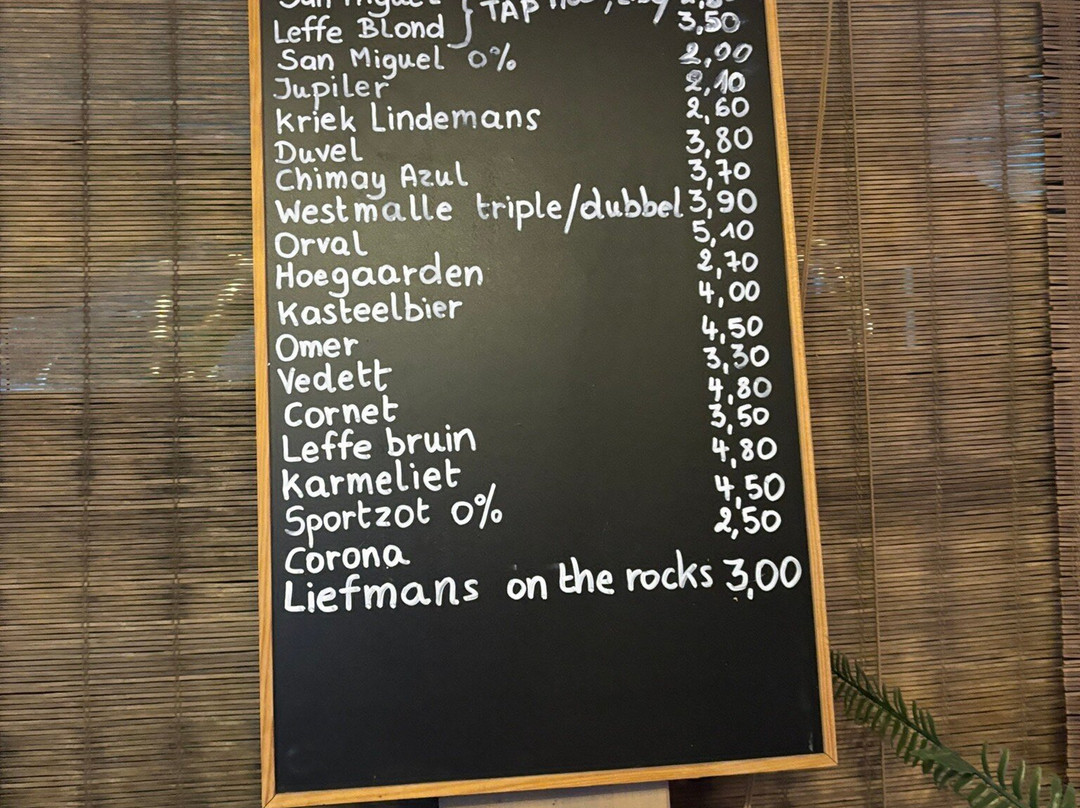 San Miguel } TAP
Leffe Blond 3,50
San Miguel 0% 2,00
Jupiler 2,10
Kriek Lindemans 2,60
Duvel 3,80
Chimay Azul 3,70
Westmalle triple/dubbel 3,90
Orval 5,10
Hoegaarden 2,70
Kasteelbier 4,00
Omer 4,50
Vedett 3,30
Cornet 4,80
Leffe bruin 3,50
Karmeliet 4,80
Sportzot 0% 4,50
Corona 2,50
Liefmans on the rocks 3,00